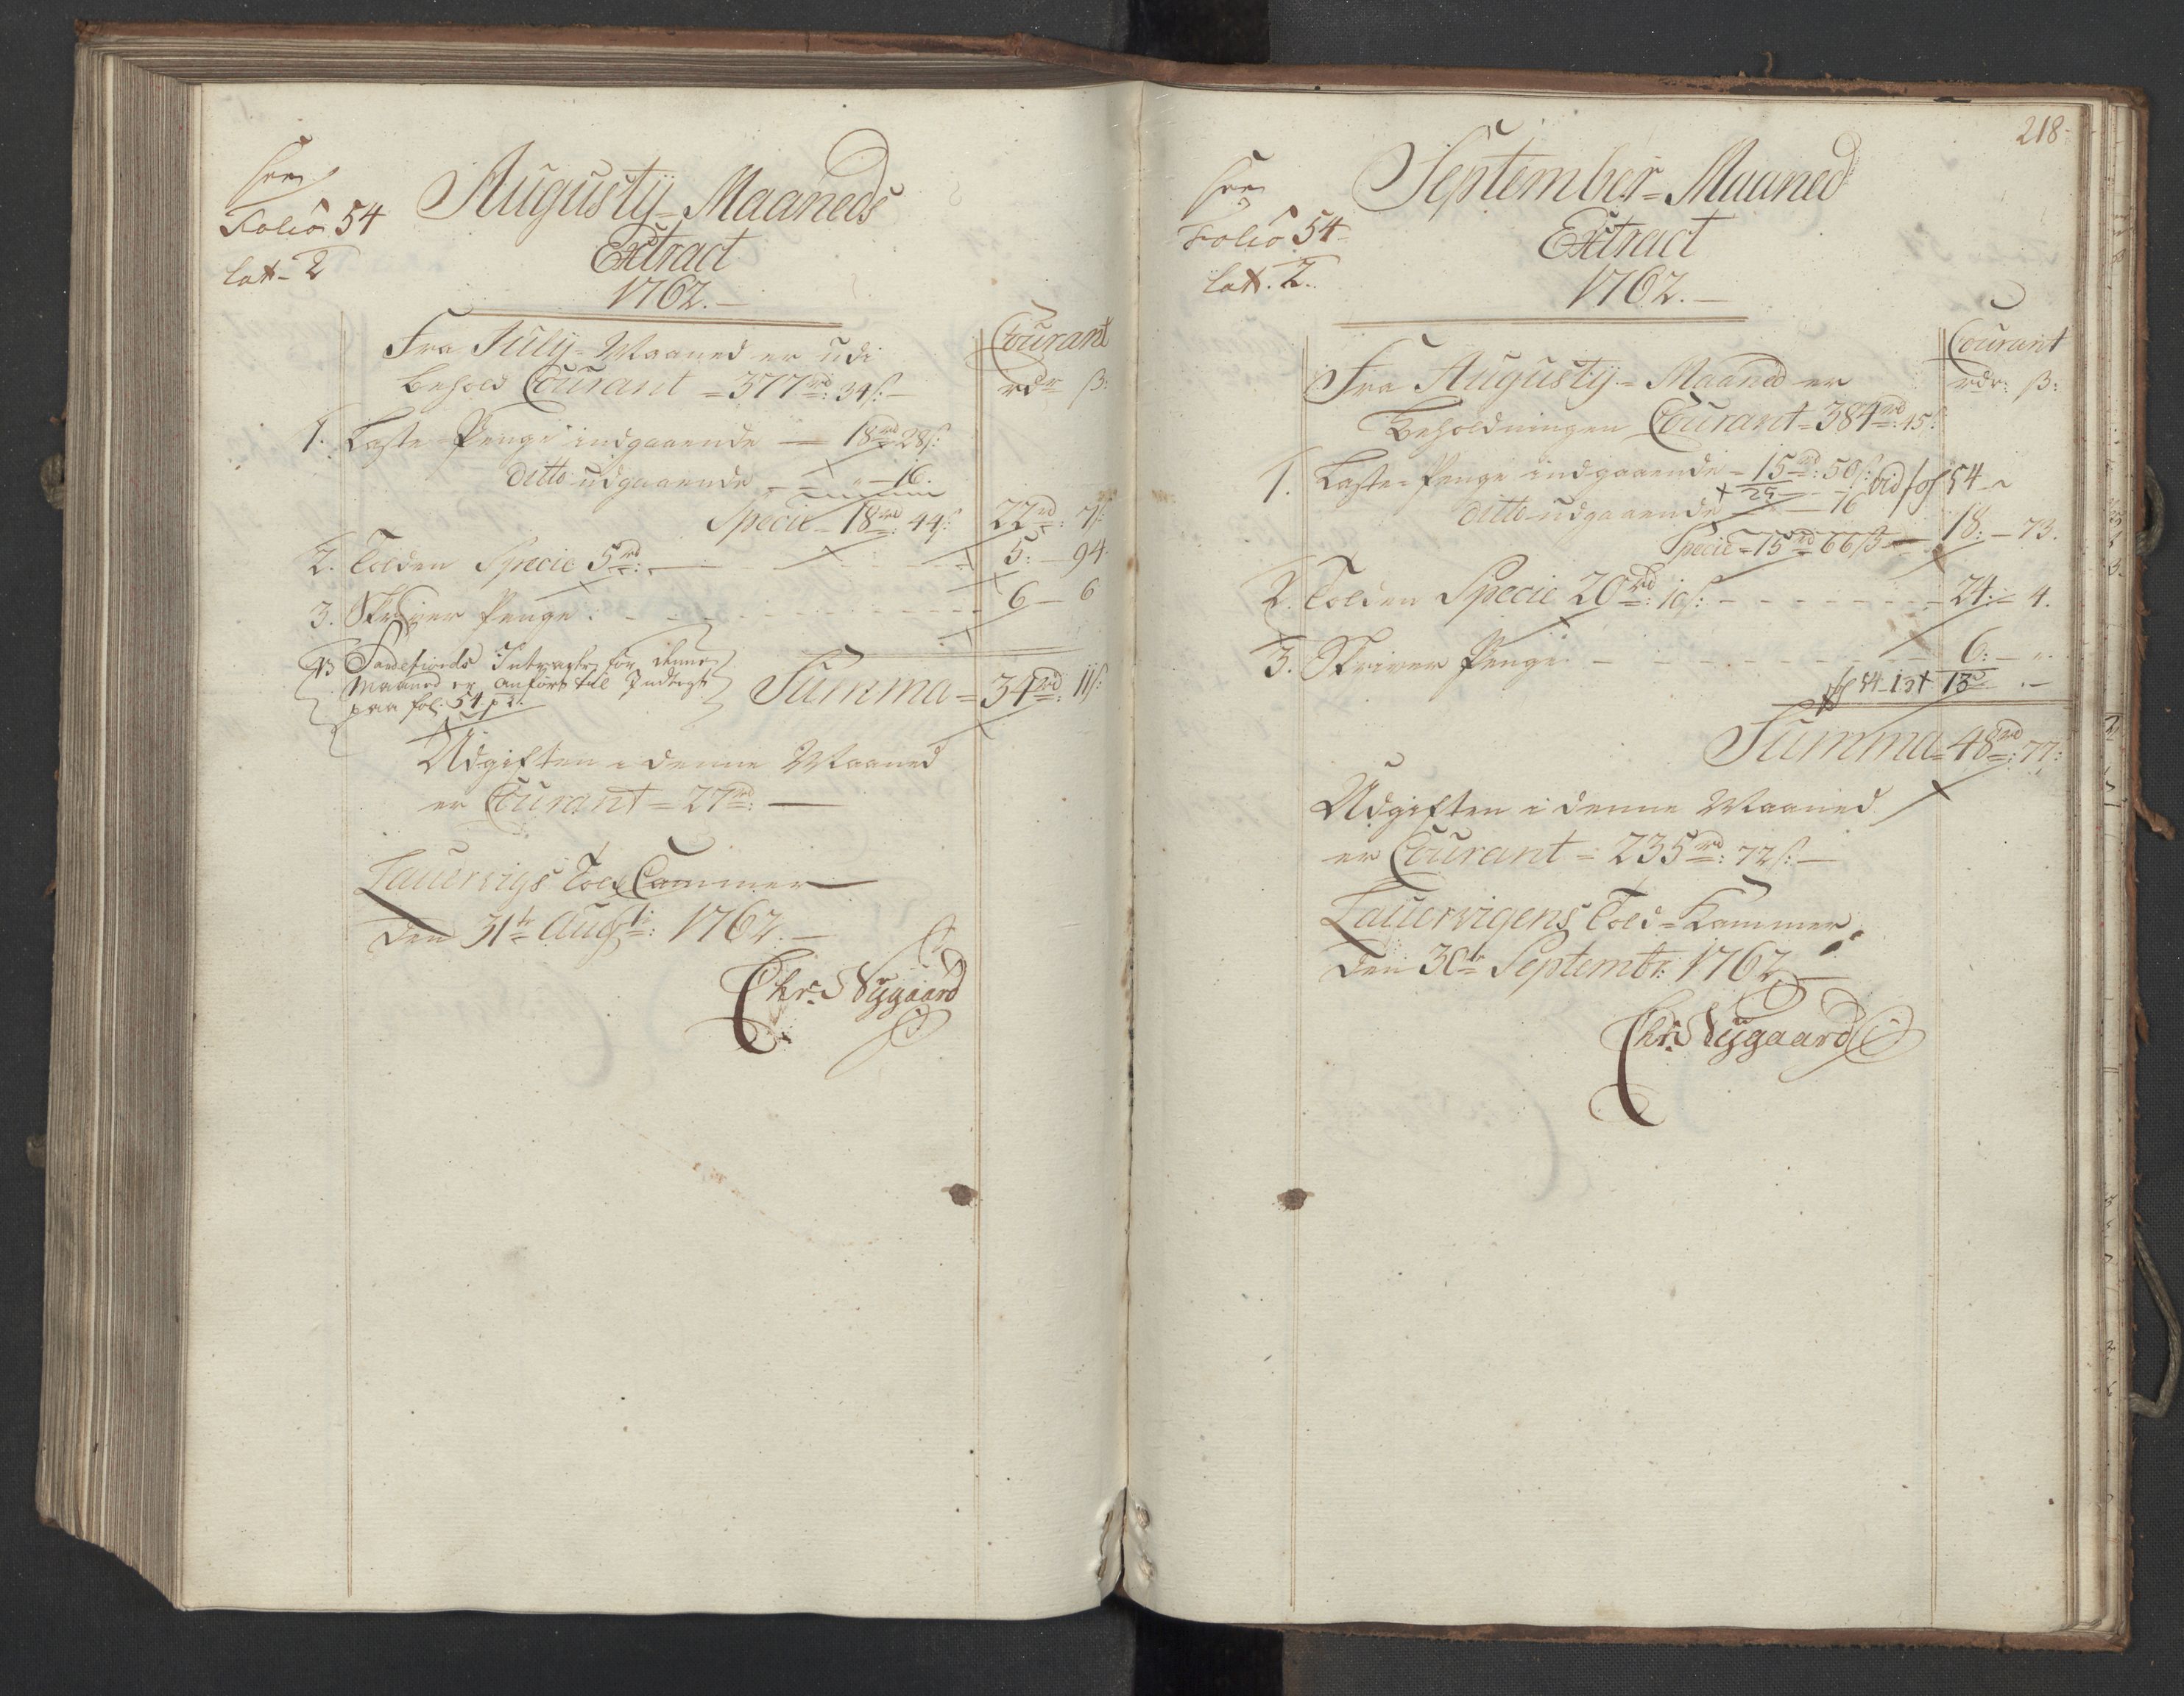 see
Folio 54
lat. 2
Augusty Maaneds
Extract
1762.
Fra July Maaned er udi
behold Courant = 377 rd: 34 s:
Courant
rdr ß:
1. Laste Penge indgaaende — 18 rd 28 s:
ditto udgaaende — „ — 16.
Specie 18 rd: 44 s: 22 rd: 7 s:
2. Tolden Specie 5 rd: — 5: — 94
3. Skriver Penge: 6 — 6
NB Sandefiords Intrader for denne
Maaned er anført til Indtegt
paa fol: 54. p 2.
Summa = 34 rd: 11 s:
Udgiften i denne Maaned
er Courant = 27 rd: —
Lauervigs Told Cammer
den 31te Augsti: 1762. —
Chr: Nygaard
218
see
Folio 54
lat. 2.
September = Maaned
Extract
1762. —
Fra Augusty = Maaned er
Beholdningen Courant = 384 rd: 45 s:
Courant
rdr: ß:
1. Laste = Penge indgaaende = 15 rd: 50 s: vid fol 54
25
ditto udgaaende — 16
Specie = 15 rd 66 ß — 18: — 73.
2. Tolden Specie 20 rd: 10 s: — 24: — 4.
3. Skriver Penge — 6: — „
fol 54 13 — . —
Summa = 48 rd: 77:
Udgiften i denne Maaned
er Courant = 235 rd: 72 s: —
Lauervigens Told = Kammer
den 30te Septembr: 1762
Chr: Nygaard